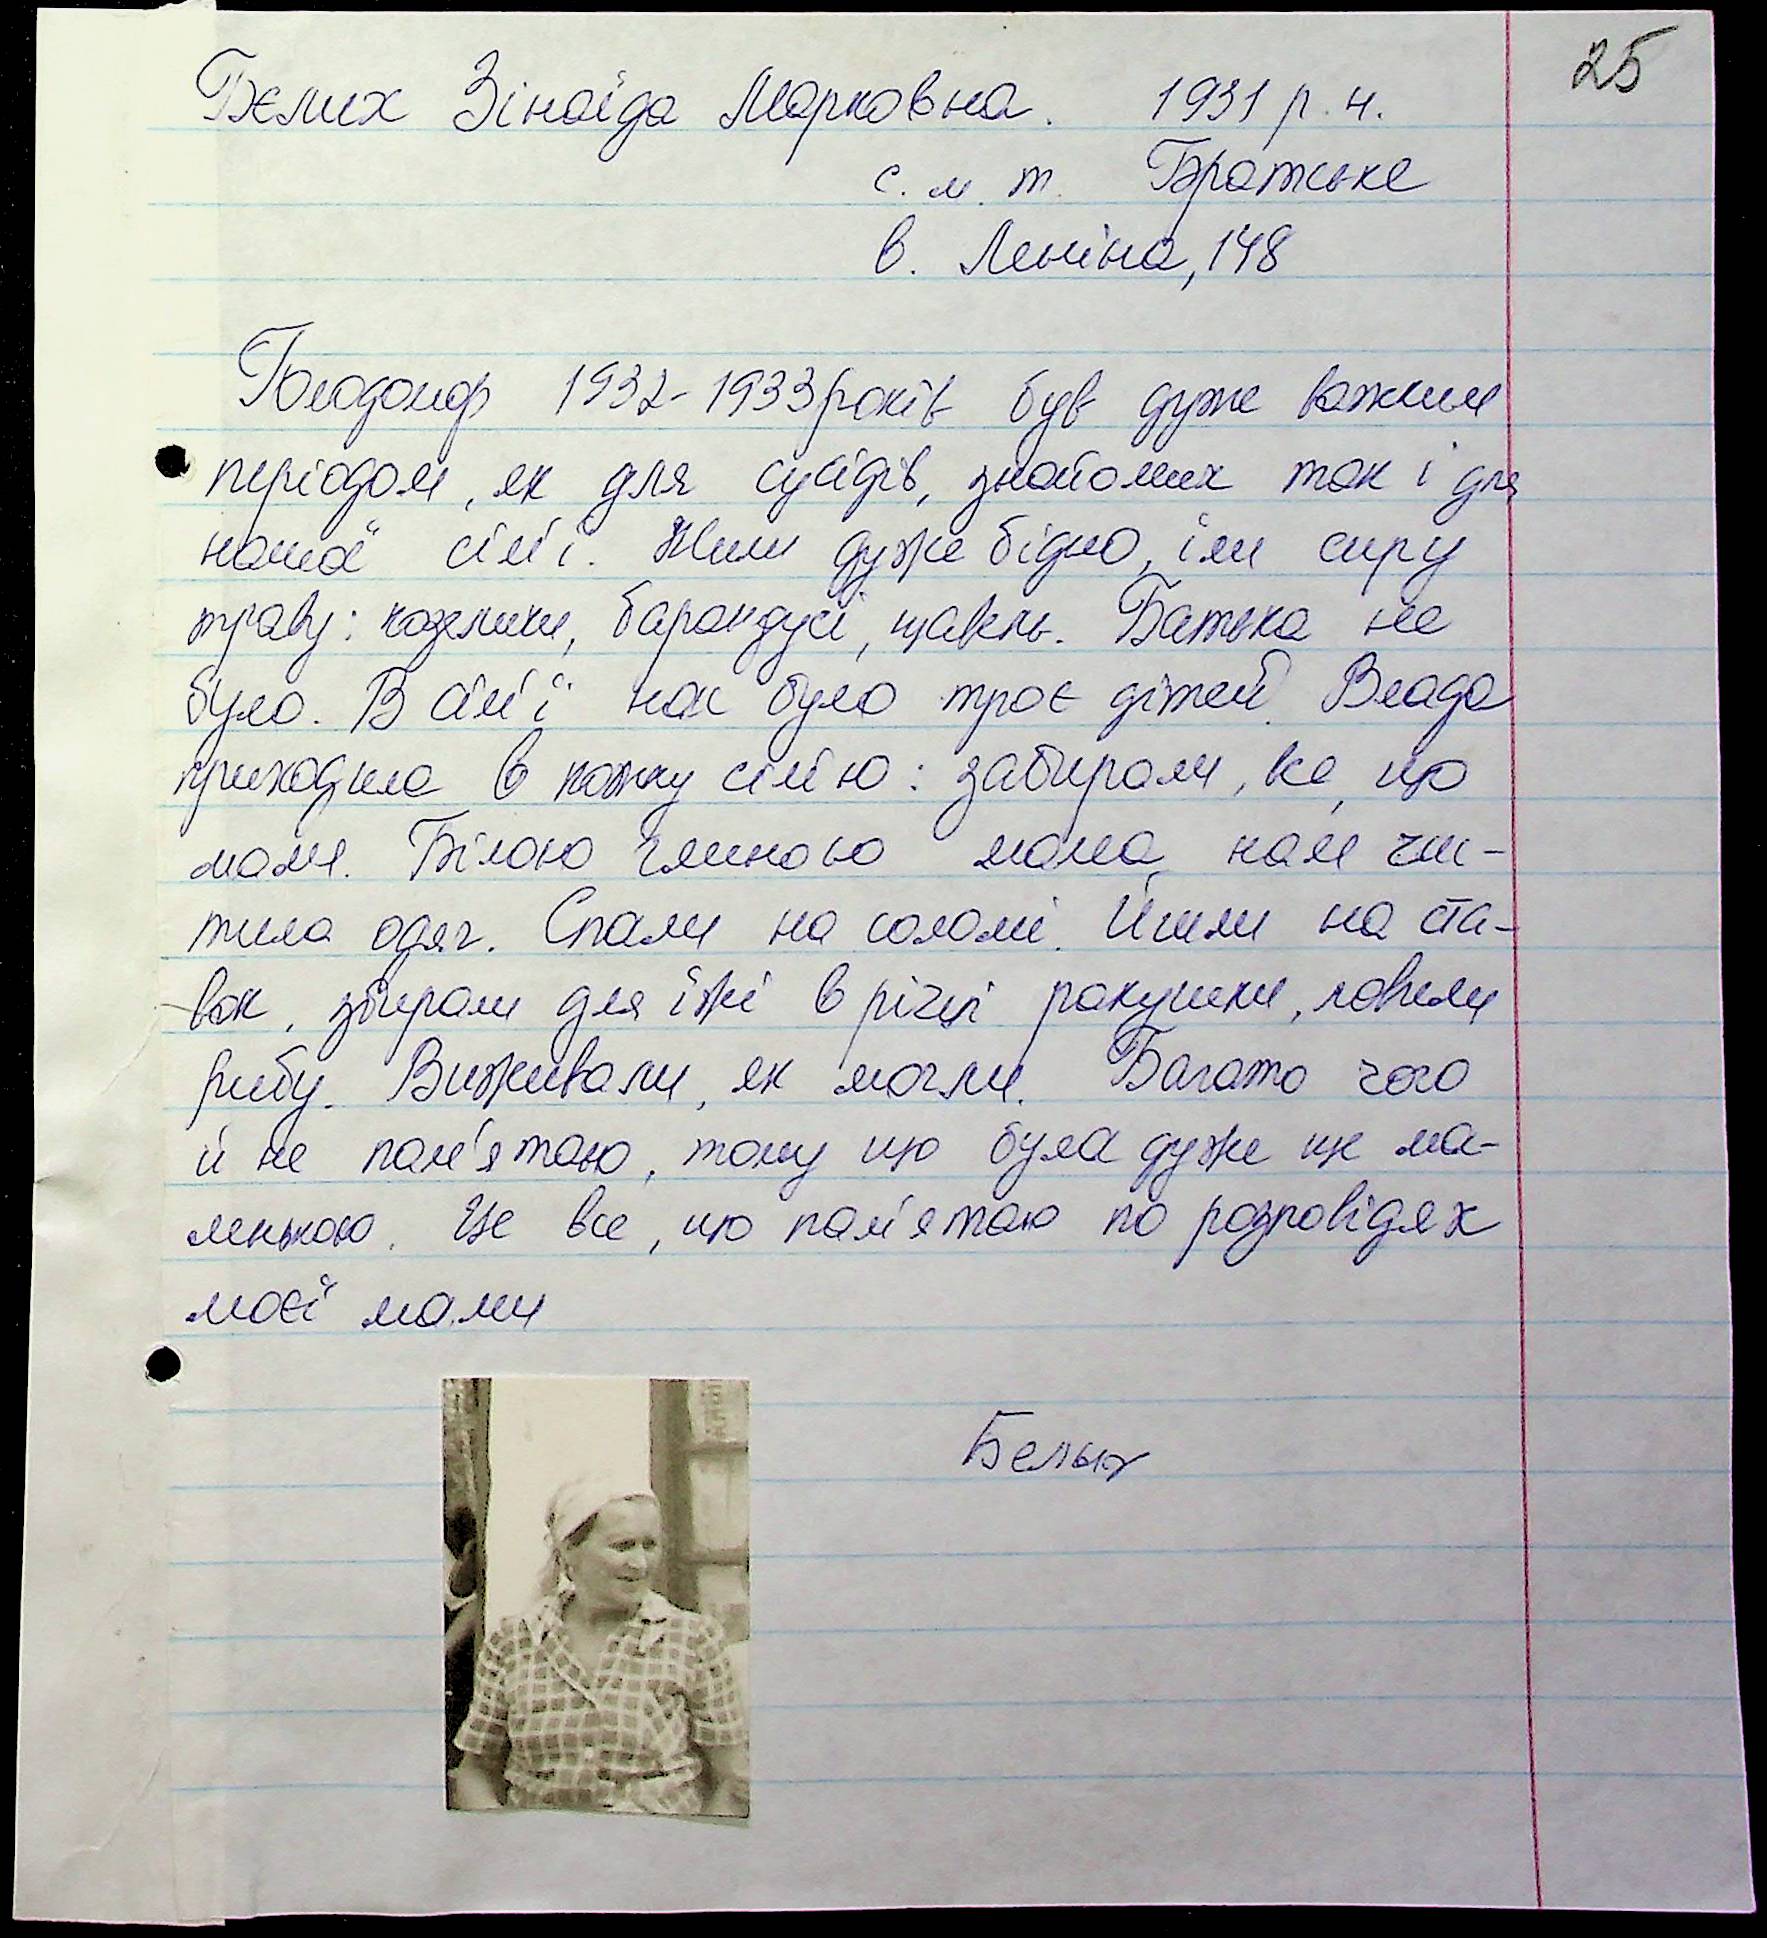 25
Бєлих Зінаїда Марковна. 1931 р. н.
с. м. т. Братське
в. Леніна, 148
Голодомор 1932-1933 років був дуже важким
періодом, як для сусідів, знайомих так і для
нашої сім'ї. Жили дуже бідно, їли сиру
траву: козелики, барандусі, щавель. Батька не
було. В сім'ї нас було троє дітей. Влада
приходила в кожну сім'ю: забирали, все, що
мали. Білою глиною мама нам чис-
тила одяг. Спали на соломі. Йшли на ста-
вок, збирали для їжі в річці ракушки, ловили
рибу. Виживали, як могли. Багато чого
й не пам'ятаю, тому що була дуже ще ма-
ленькою. Це все, що пам'ятаю по розповідях
моєї мами
Белых